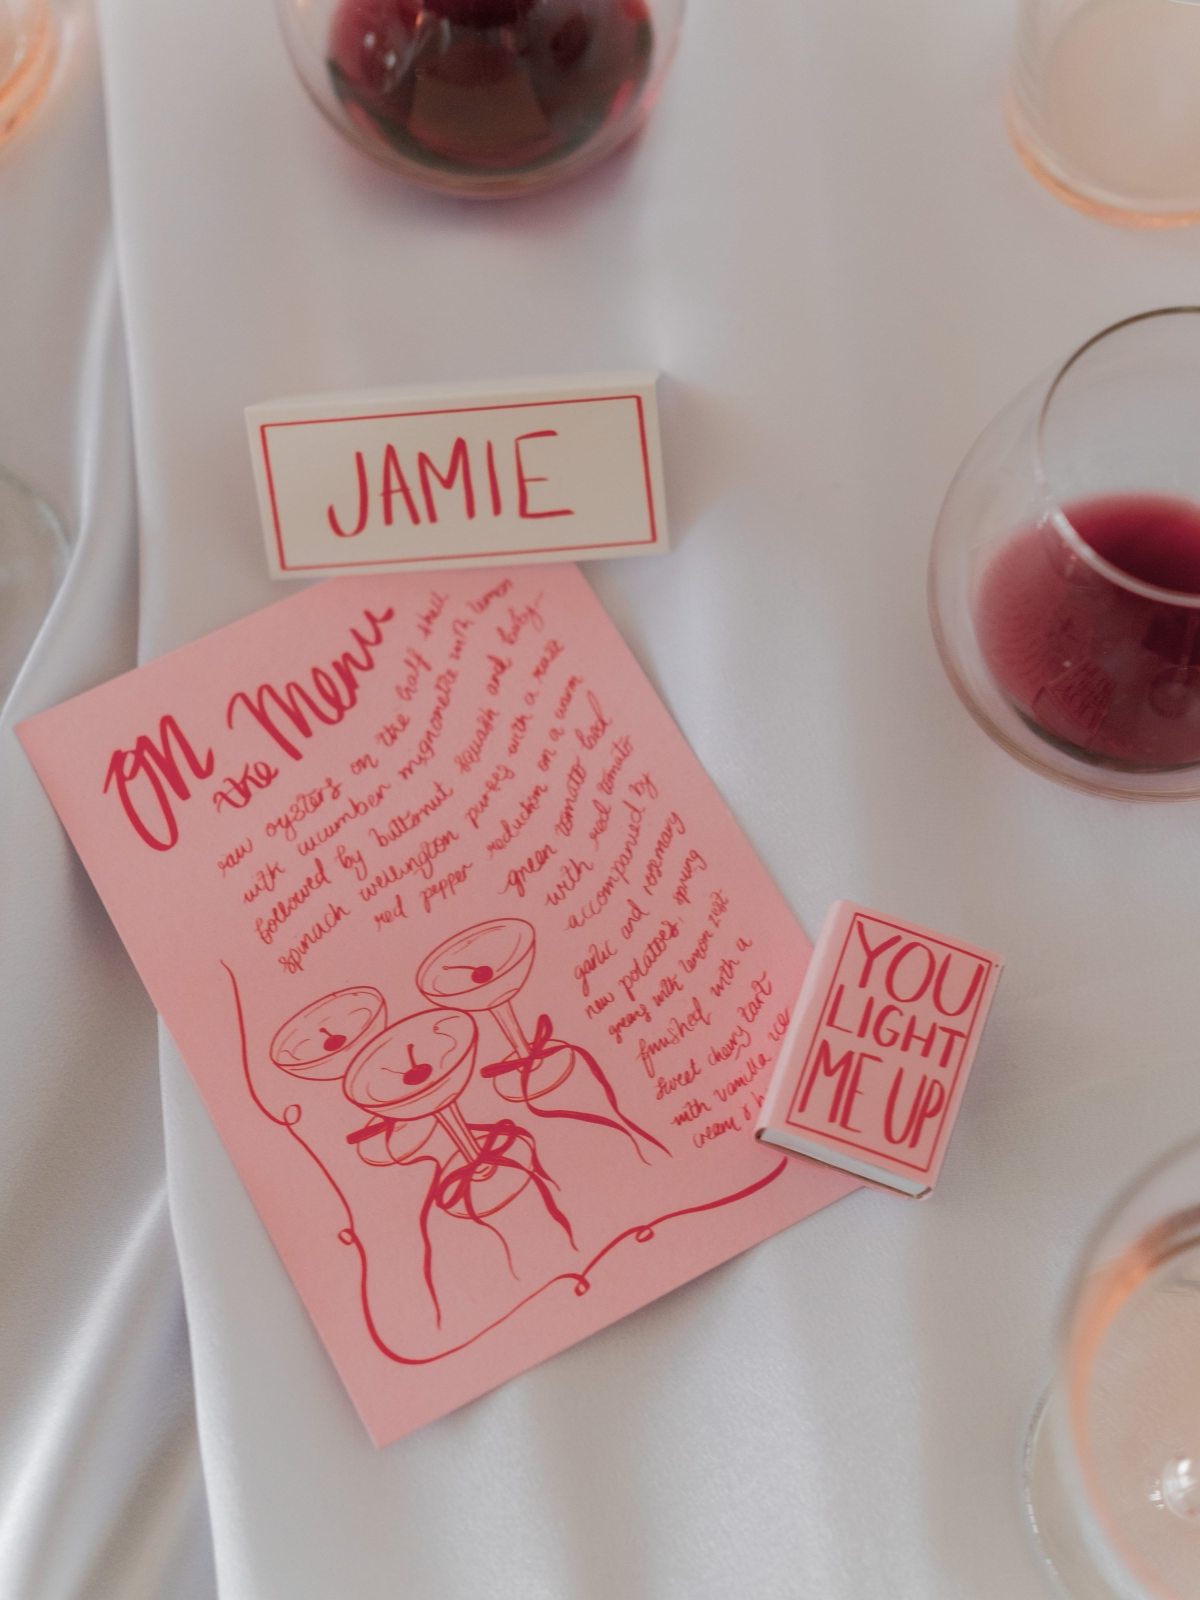 JAMIE
on
the Menu
raw oysters on the half shell
with cucumber mignonette with lemon
followed by butternut squash and baby
spinach wellington purées with a rosé
red pepper reduction on a warm
green tomato bed
with red tomato
accompanied by
garlic and rosemary
new potatoes, spring
greens with lemon zest
finished with a
sweet cherry tart
with vanilla ice
cream
YOU
LIGHT
ME UP